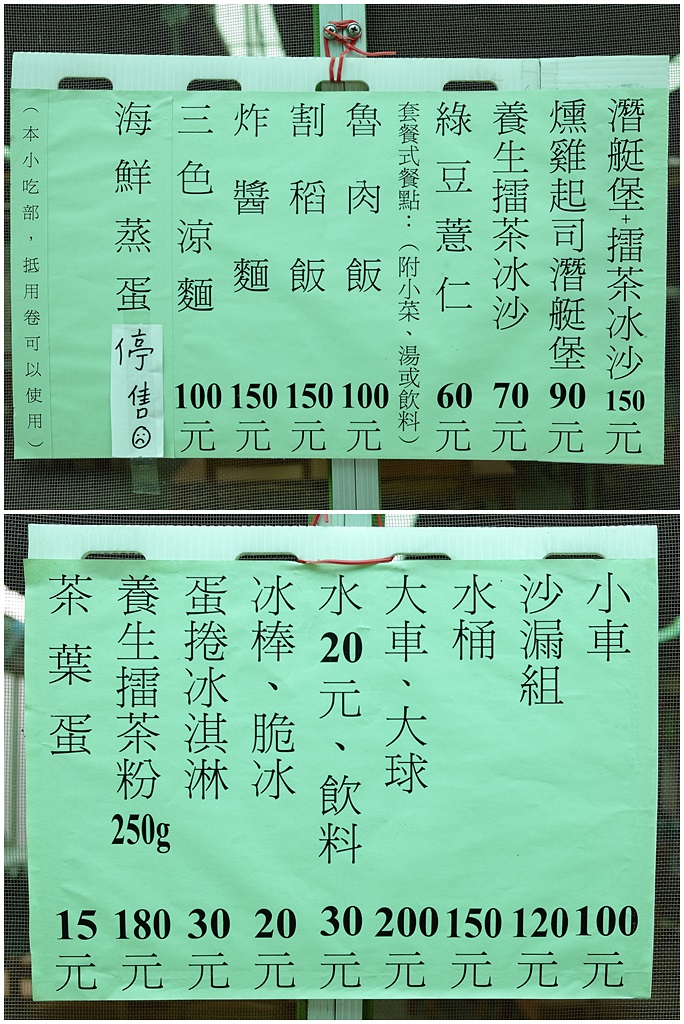 潛艇堡+擂茶冰沙150元
燻雞起司潛艇堡90元
養生擂茶冰沙70元
綠豆薏仁60元
套餐式餐點：（附小菜、湯或飲料）
魯肉飯100元
割稻飯150元
炸醬麵150元
三色涼麵100元
海鮮蒸蛋停售
（本小吃部，抵用卷可以使用）
小車100元
沙漏組120元
水桶150元
大車、大球200元
水20元、飲料30元
冰棒、脆冰20元
蛋捲冰淇淋30元
養生擂茶粉250g180元
茶葉蛋15元